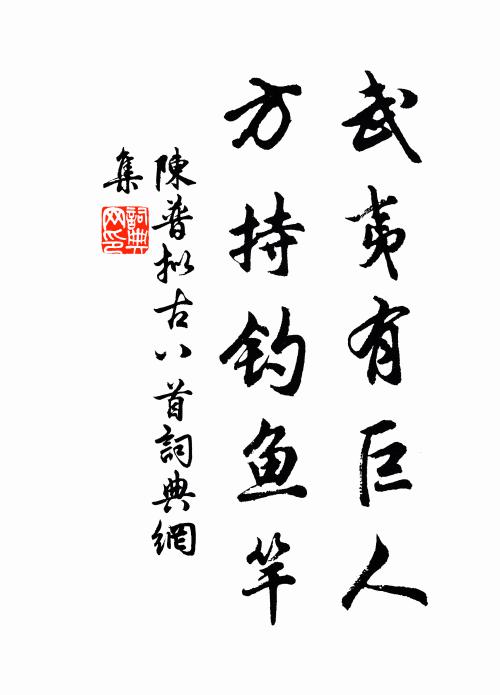 武夷有巨人
方持钓鱼竿
陳普拟古八首詞典網
集
詞典
网印